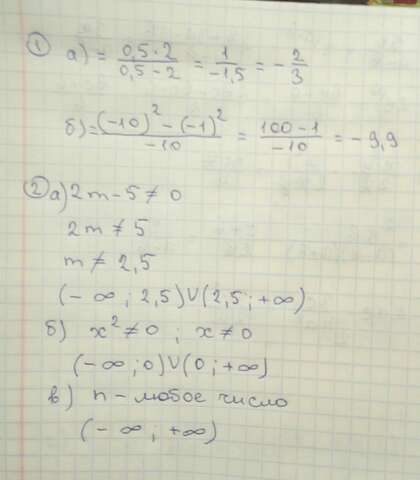 ① а) = (0,5·2)/(0,5-2) = 1/(-1,5) = -2/3
б) = ((-10)² - (-1)²)/(-10) = (100-1)/(-10) = -9,9
② а) 2m-5≠0
2m ≠ 5
m ≠ 2,5
(-∞; 2,5)∪(2,5; +∞)
б) x²≠0 ; x≠0
(-∞; 0)∪(0; +∞)
в) n - любое число
(-∞; +∞)